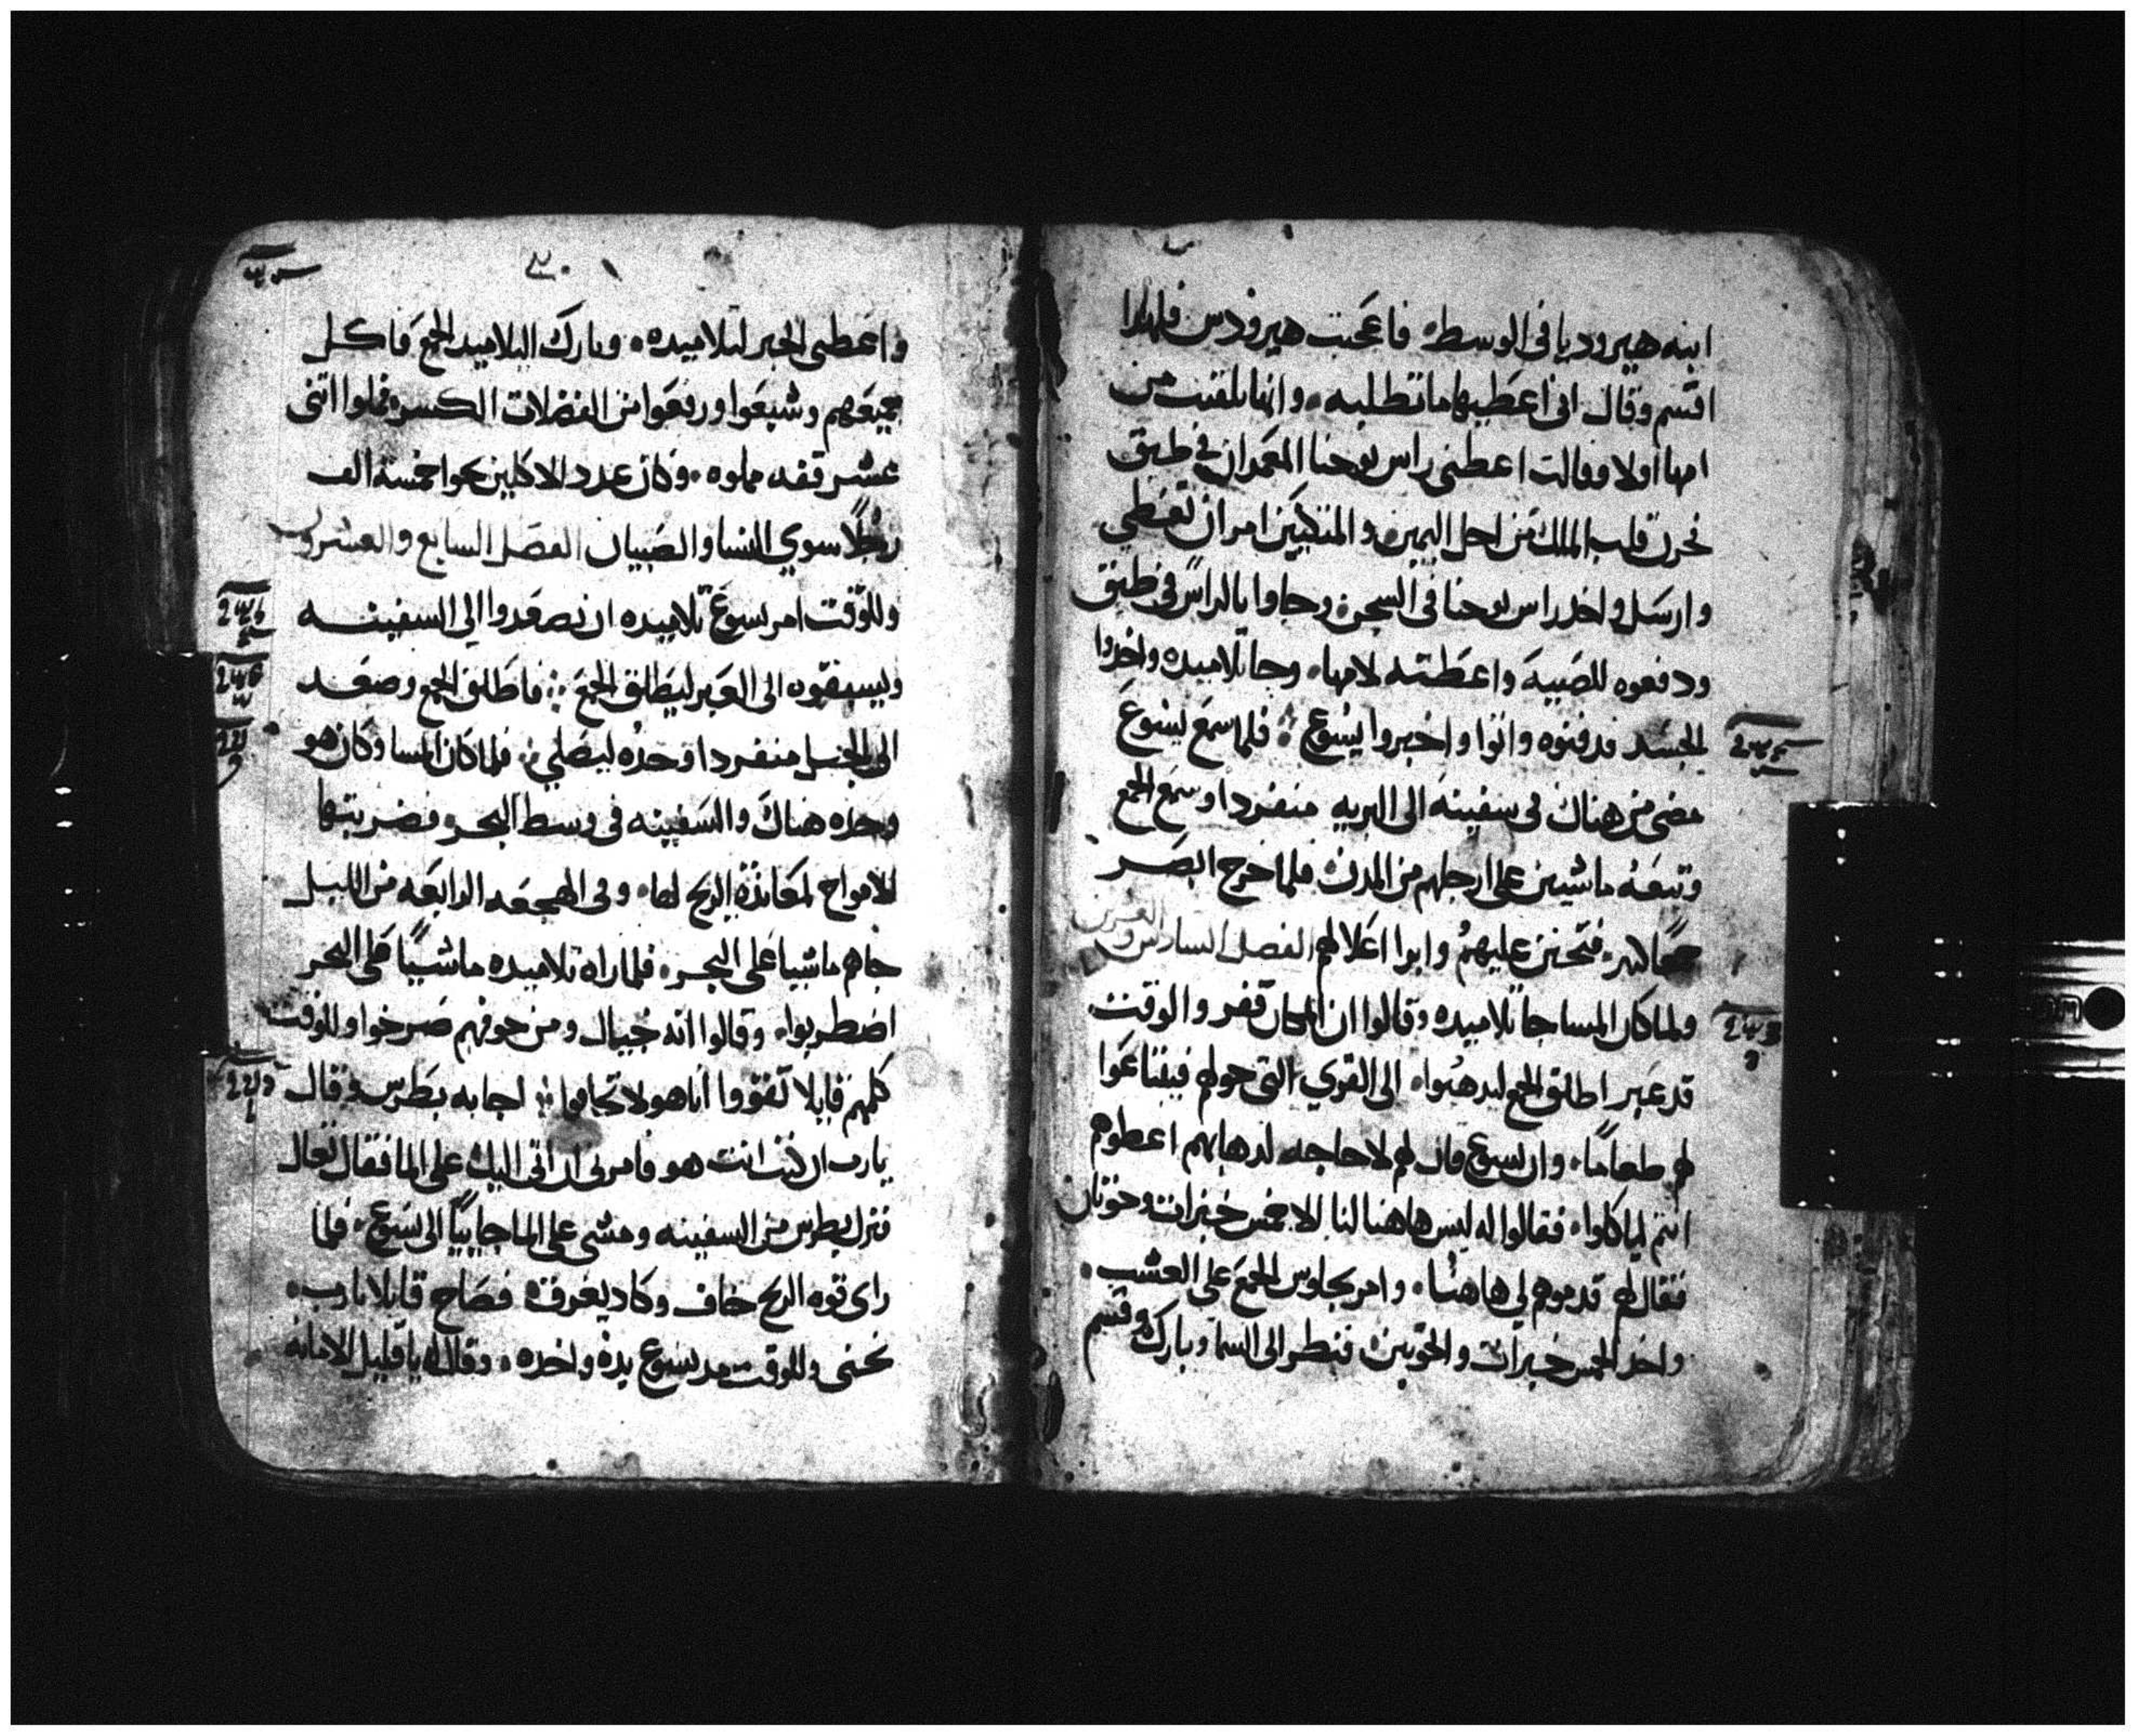 ابنه هيروديا فى الوسط فاعجبت هيرودس فلهدا
اقسم وقال انى اعطيها ما تطلبه وانها تلقنت من
امها اولا وقالت اعطنى راس يوحنا المعمدان في طبق
فحزن قلب الملك من اجل اليمين والمتكيين امر ان تعطي
وارسل واخد راس يوحنا فى السجن وجاوا بالراس فى طبق
ودفعوه للصبيه واعطته لامها وجا تلاميده واخدوا
الجسد فدفنوه واتوا واخبروا يسوع فلما سمع يسوع
مضى من هناك فى سفينه الى البريه منفردا وسمع الجمع
وتبعه ماشيين على ارجلهم من المدن فلما خرج ابصر
فتحنن عليهم وابرا اعلالهم الفصل السادس والعشرين
ولما كان المسا جا تلاميده وقالوا ان المكان قفر والوقت
قد عبر اطلق الجمع ليدهبوا الى القري التى حولهم فيبتاعوا
لهم طعاما وان يسوع قال لهم لا حاجه لدهابهم اعطوهم
انتم لياكلوا فقالوا له ليس هاهنا لنا الا خمس خبزات وحوتان
فقال لهم قدموهم لي هاهنا وامر بجلوس الجمع على العشب
واخد الخمس خبزات والحوتين فنظر الى السما وبارك وقسم
واعطى الخبز لتلاميده وبارك التلاميد الجمع فاكل
جميعهم وشبعوا ورفعوا من الفضلات الكسر فملوا اتنى
عشر قفه مملوه وكان عدد الاكلين نحوا خمسة الف
رجلا سوي النسا والصبيان الفصل السابع والعشرون
وللوقت امر يسوع تلاميده ان يصعدوا الي السفينه
ويسبقوه الى العبر ليطلق الجمع فاطلق الجمع وصعد
الى الجبل منفردا وحده ليصلي فلما كان المسا وكان هو
وحده هناك والسفينه فى وسط البحر فضربتها
الامواج لمعاندة الريح لها وفى الهجعه الرابعه من الليل
جاهم ماشيا على البحر فلما راه تلاميده ماشيا على البحر
اضطربوا وقالوا انه خيال ومن خوفهم صرخوا وللوقت
كلمهم قايلا تقووا انا هو لا تخافوا اجابه بطرس وقال
يارب ان كنت انت هو فامرنى ان اتى اليك على الما فقال تعال
فنزل بطرس من السفينه ومشى على الما جاييا الى يسوع فلما
راى قوه الريح خاف وكاد يغرق فصاح قايلا يارب
نجنى وللوقت مد يسوع يده واخده وقال له يا قليل الامانه